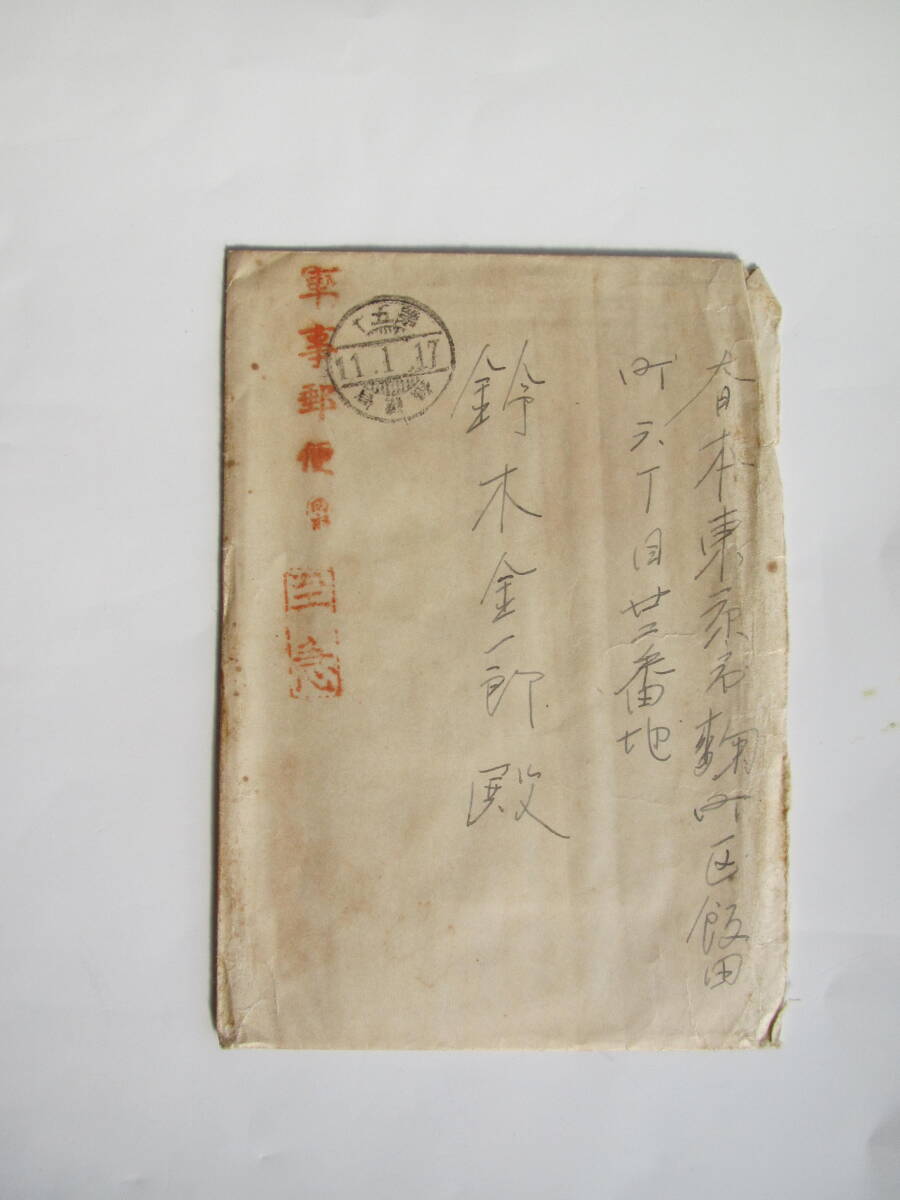 大日本東京市麹町区飯田
町六丁目廿二番地
鈴木金一郎殿
軍事郵便
至急
11.1.17